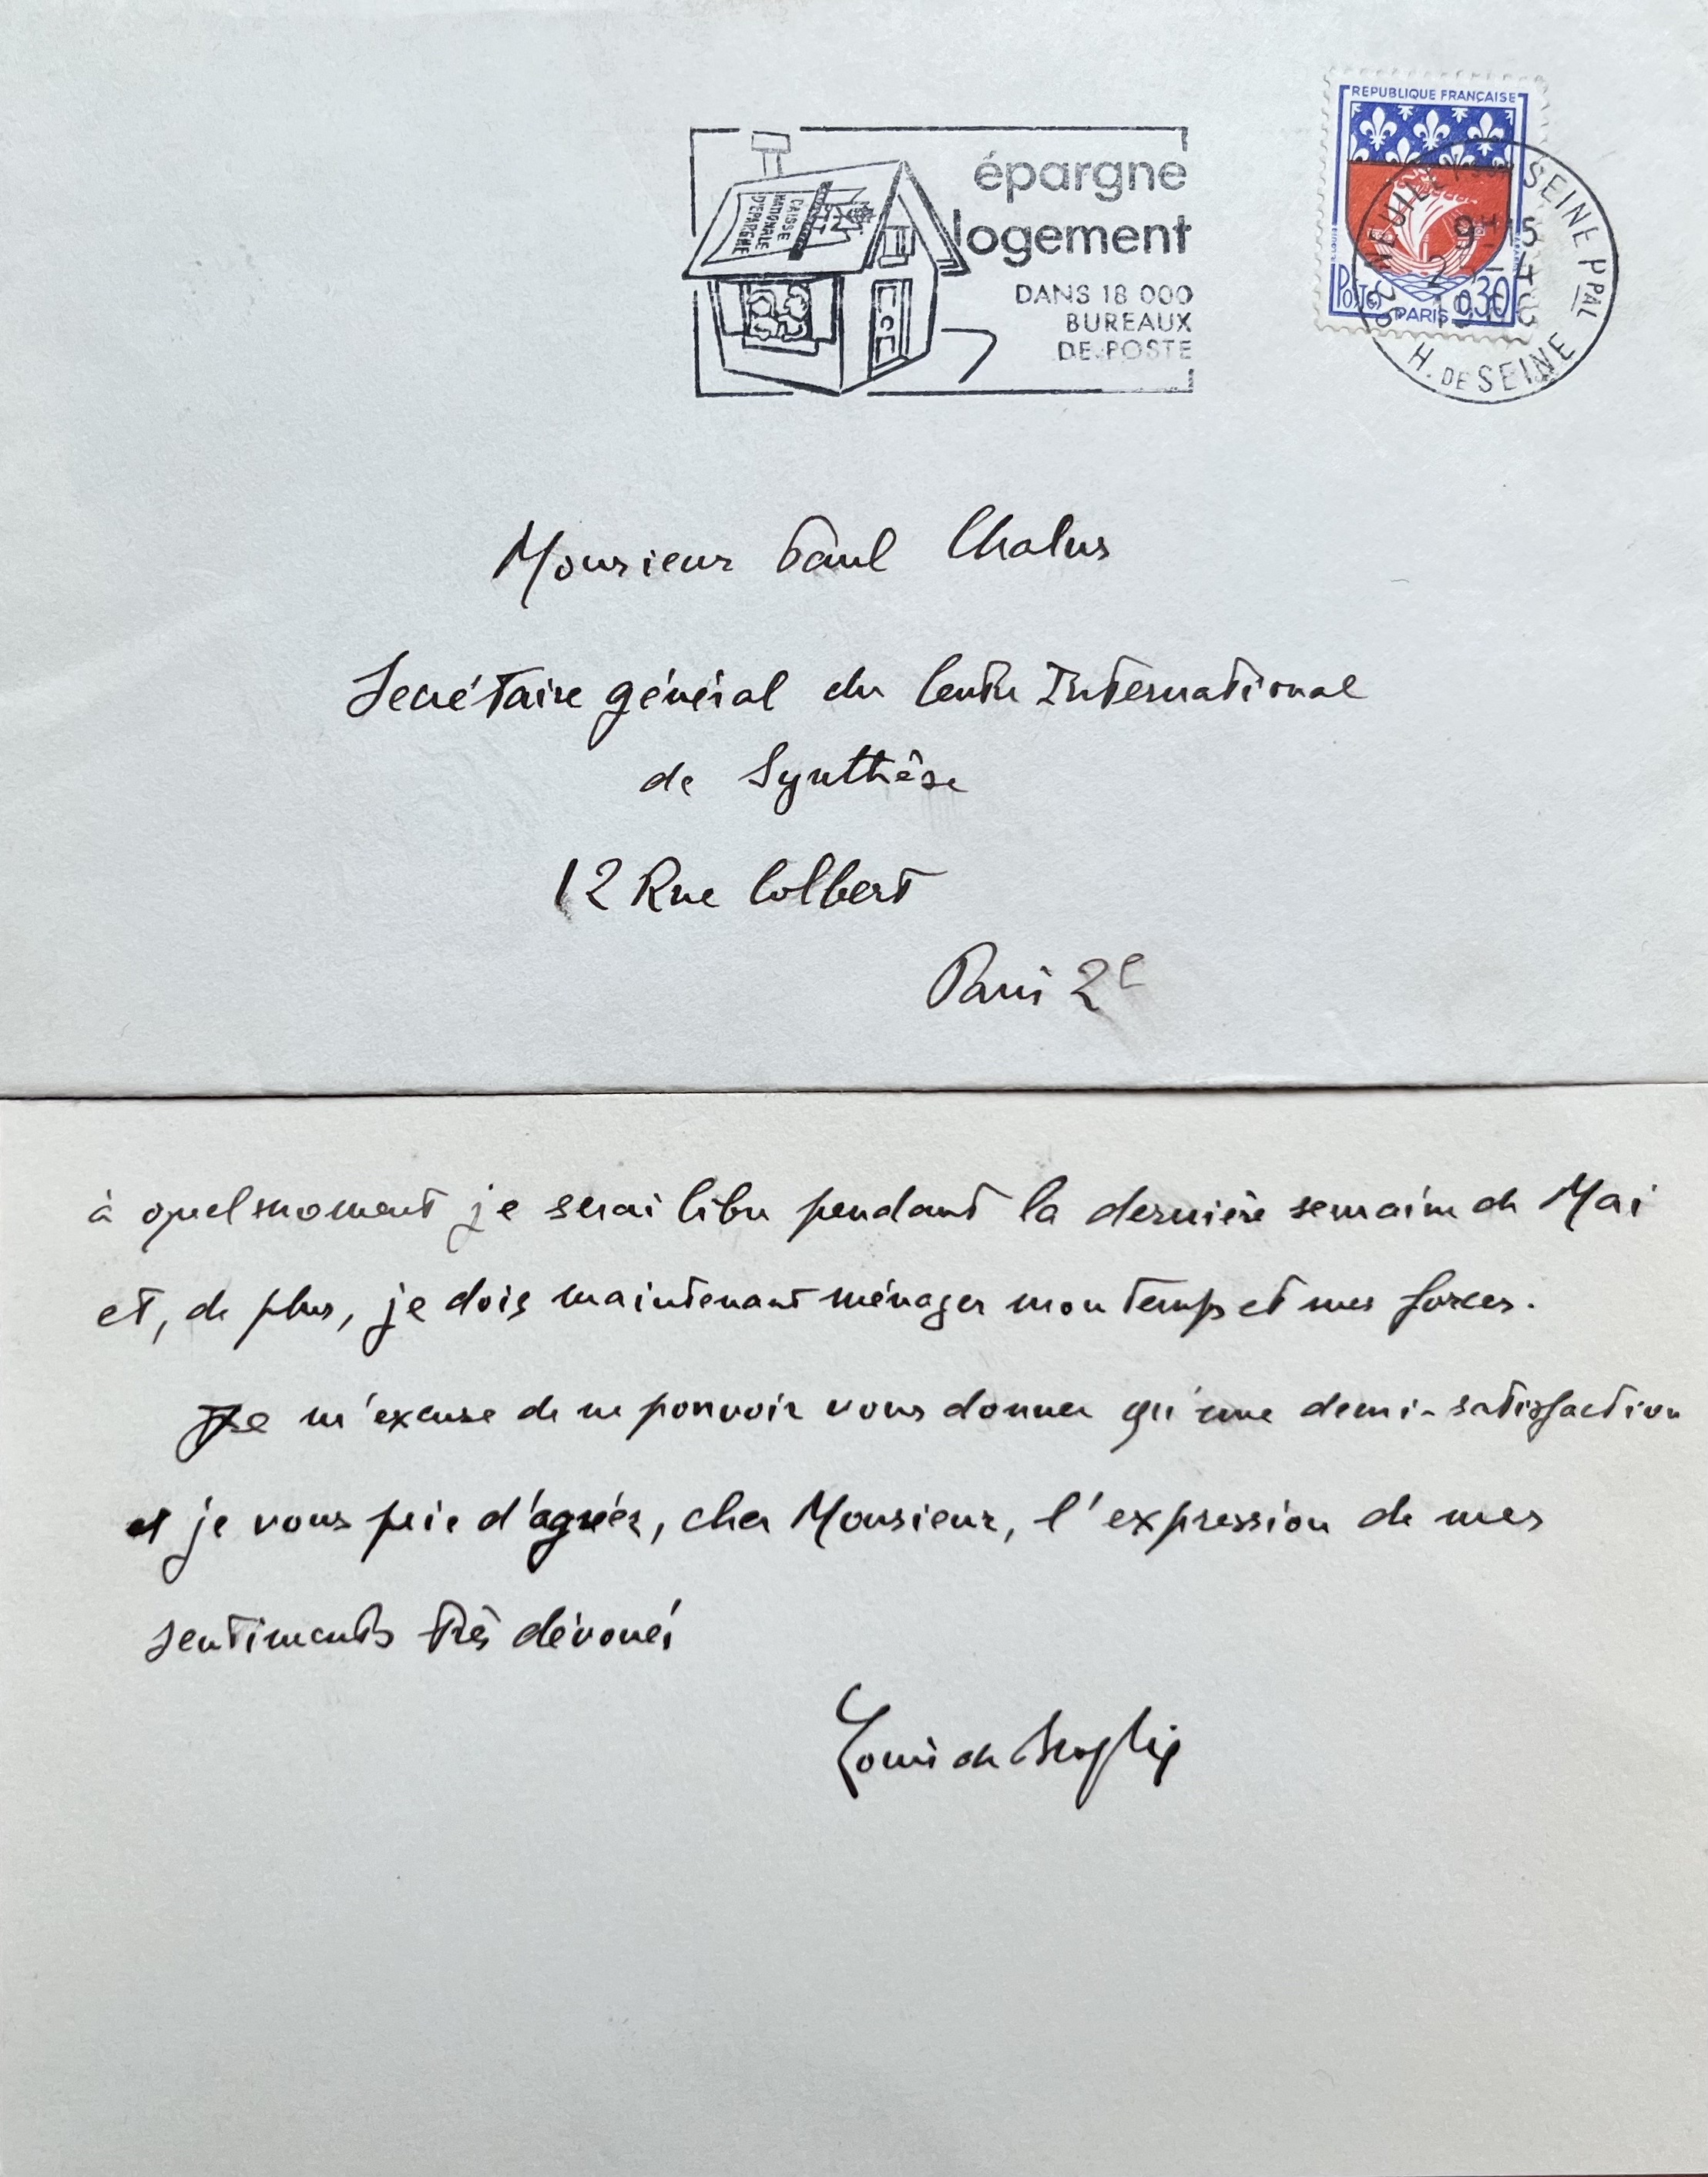 épargne
logement
DANS 18 000
BUREAUX
DE POSTE
CAISSE
NATIONALE
D'EPARGNE
REPUBLIQUE FRANÇAISE
Postes
0,30
PARIS
NEUILLY SUR SEINE PPAL
9H15
H. DE SEINE
Monsieur Paul Chalus
Secrétaire général du Centre International
de Synthèse
12 Rue Colbert
Paris 2e
à quel moment je serai libre pendant la dernière semaine de Mai
et, de plus, je dois maintenant ménager mon temps et mes forces.
Je m'excuse de ne pouvoir vous donner qu'une demi-satisfaction
et je vous prie d'agréer, cher Monsieur, l'expression de mes
sentiments très dévoués
Louis de Broglie